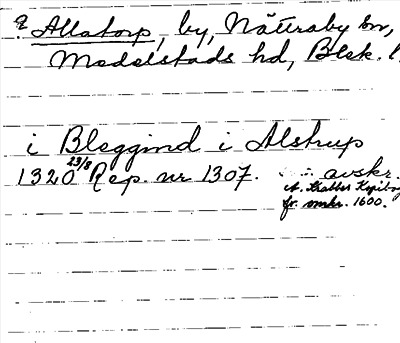 ? Allatorp, by, Nättraby sn,
Medelstads hd, Blek. l.
i Bleggind i Alstrup
1320 23/8 Rep. nr 1307. avskr.
i A. Krabbes Kopibog
fr. omkr. 1600.